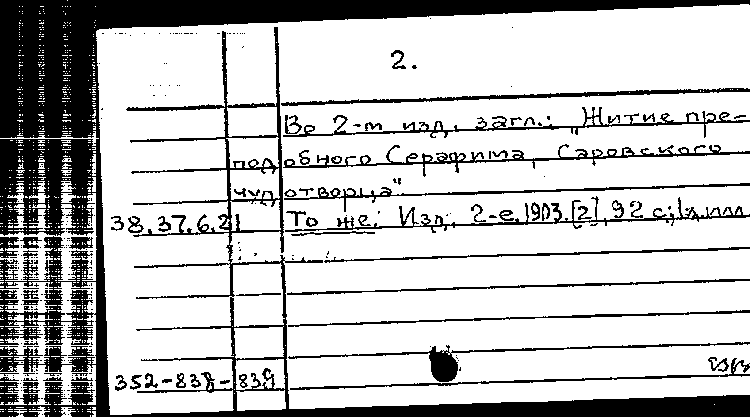 2.
Во 2-м изд. загл.: „Житие пре-
подобного Серафима, Саровского
чудотворца“
38.37.6.21 То же: Изд. 2-е. 1903. [2], 92 с.; 1 л. илл
352-838-839